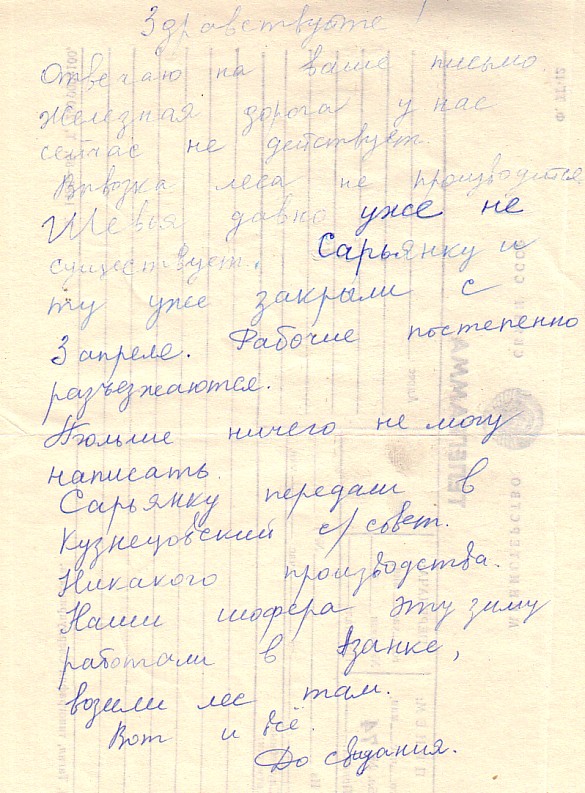 Здравствуйте!
Отвечаю на ваше письмо
Железная дорога у нас
сейчас не действует.
Вывозка леса не производится
Шевья давно уже не
существует. Сарьянку и
ту уже закрыли с
3 апреле. Рабочие постепенно
разъезжаются.
Больше ничего не могу
написать.
Сарьянку передали в
Кузнецовский с/совет.
Никакого производства.
Наши шофера эту зиму
работали в Азанке,
возили лес там.
Вот и всё.
До свидания.